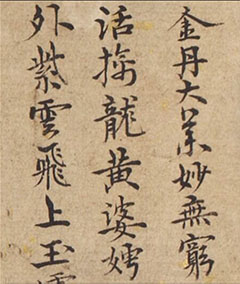 金丹大業妙無窮
活擒龍黃婆娉
外紫雲飛上玉